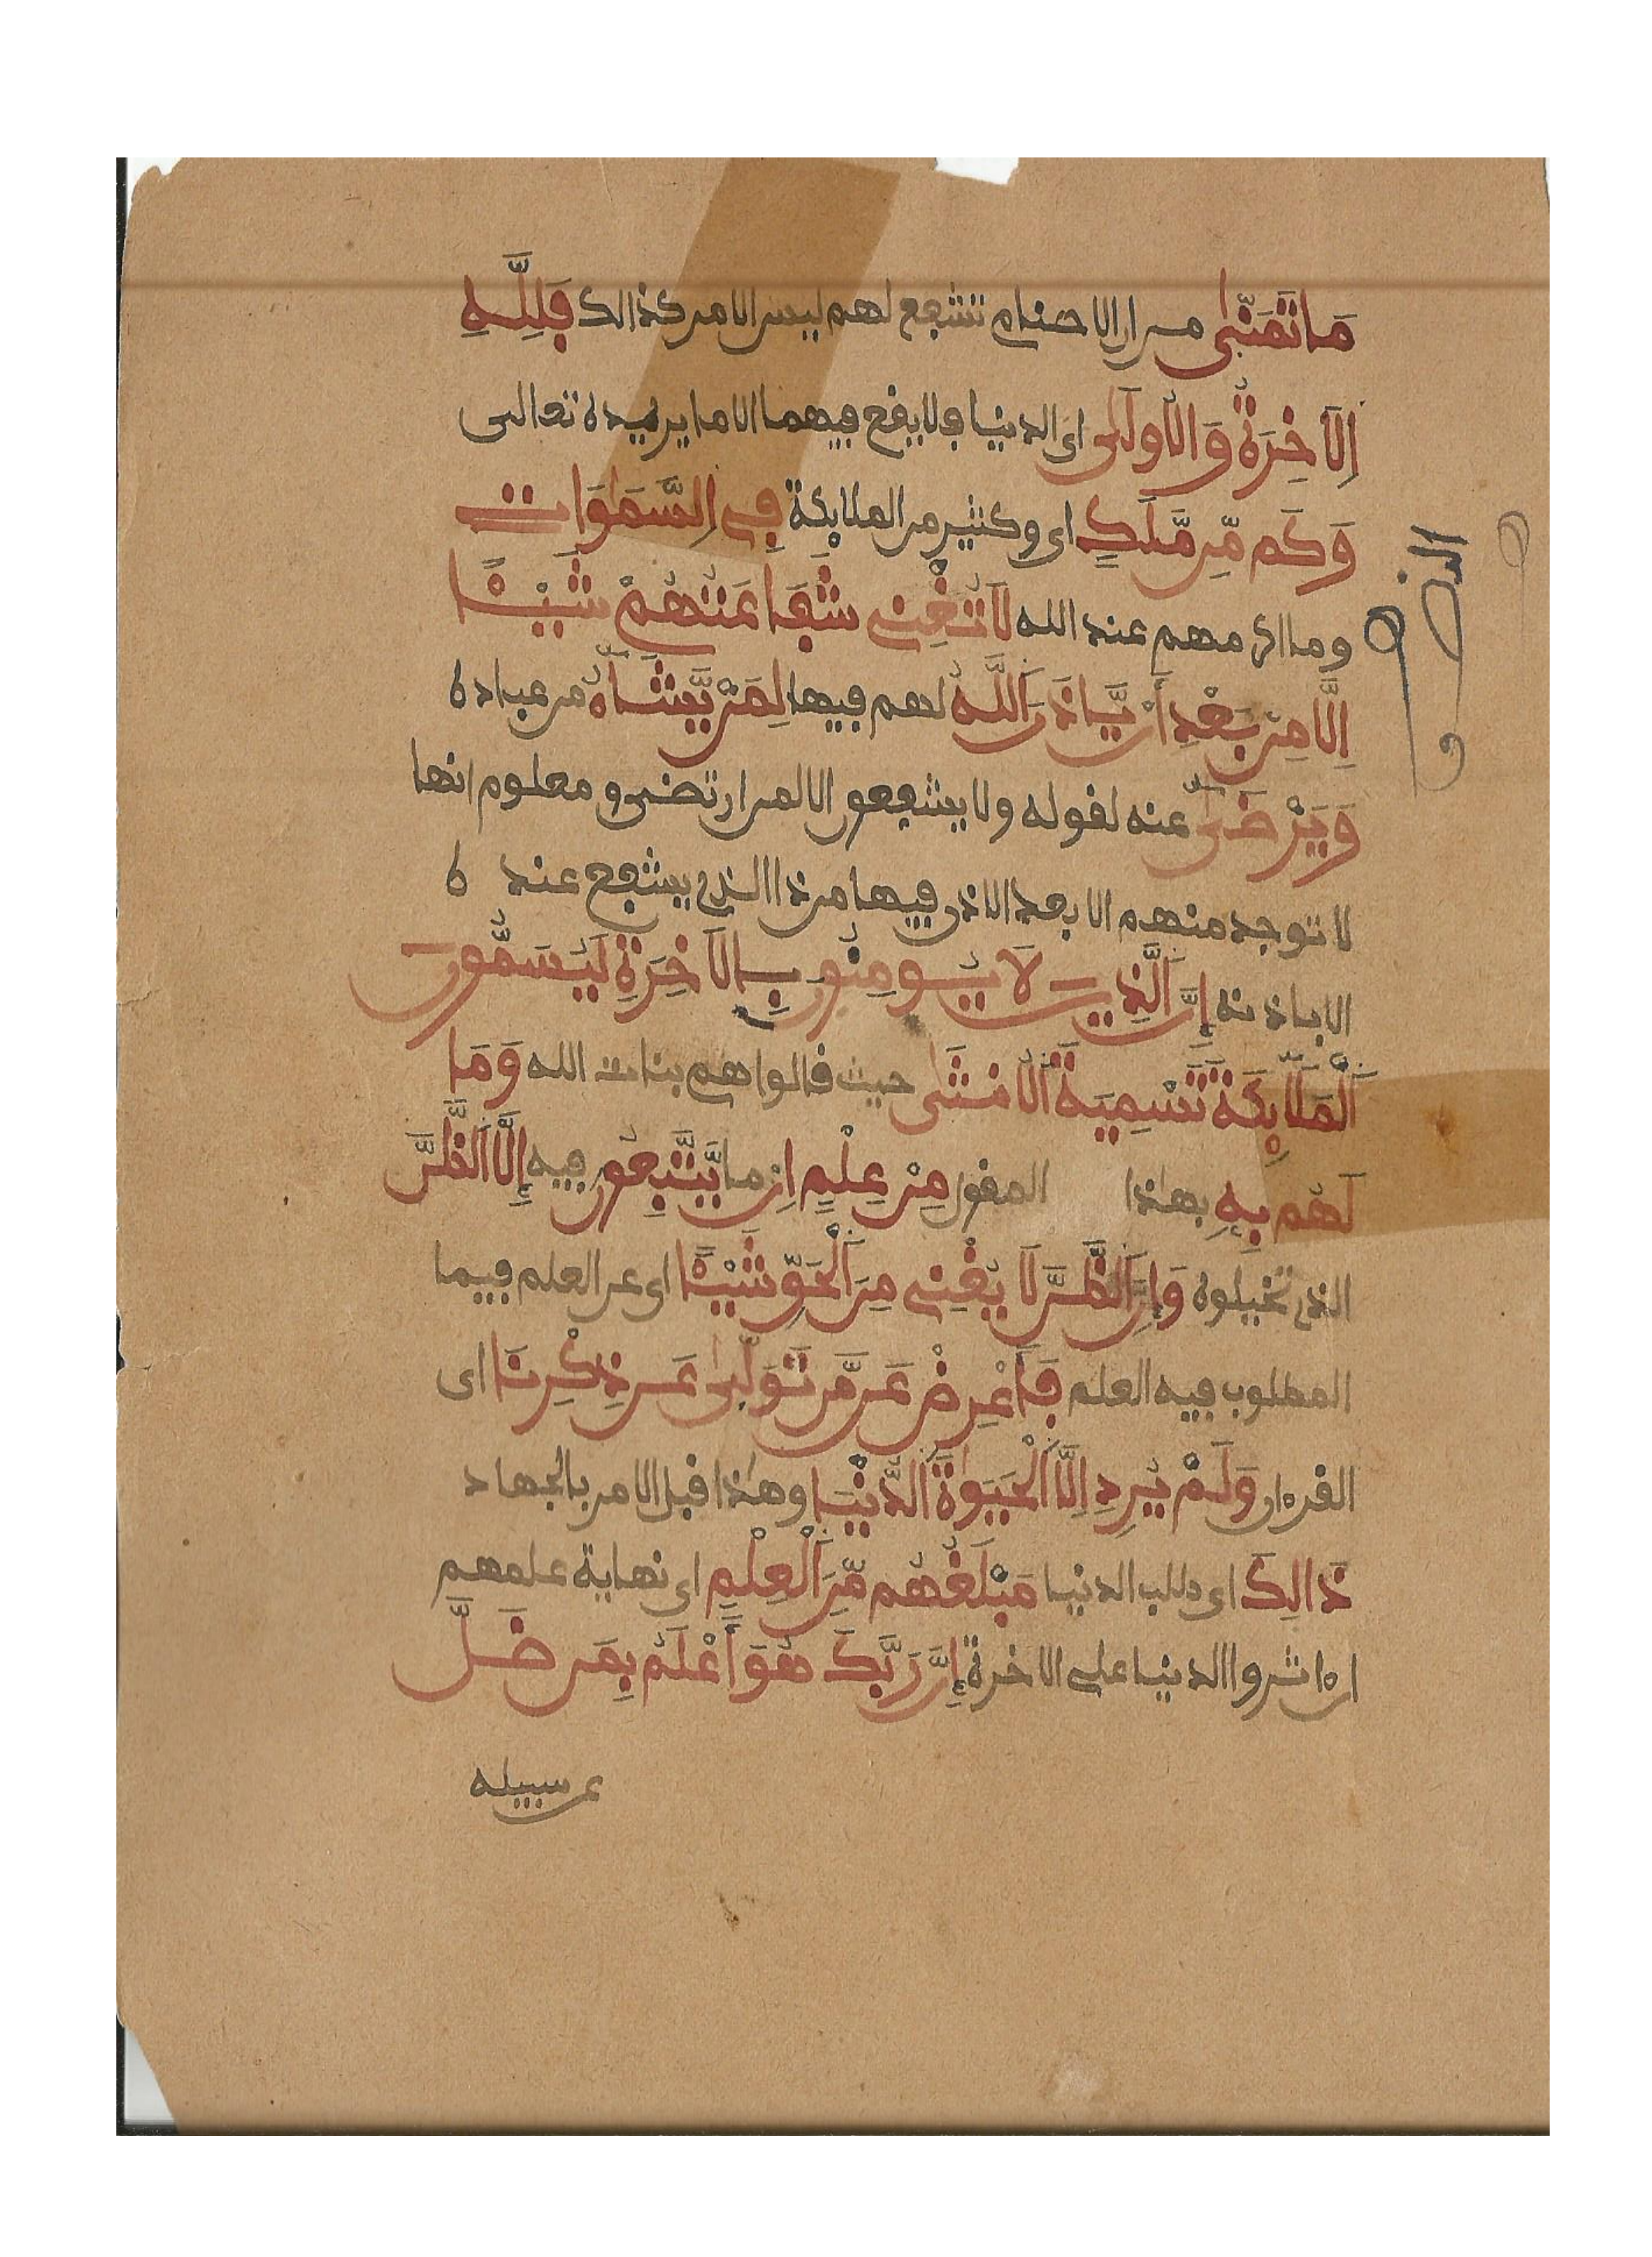 مَا تَمَنّٰى من ان الاصنام تشفع لهم ليس الامر كذالك فَلِلَّهِ
اِلَاخِرَةُ وَالُاولَىٰ اى الدنيا فلا يقع فيهما الا ما يريده تعالى
وَكَم مِّن مَّلَكٍ اى وكثير من الملائكة فِى اِلسَّمَٰوَاتِ
وما اكرمهم عند الله لَا تُغْنِى شَفَاعَتُهُمْ شَيْـًٔا
اِلَّا مِنۢ بَعْدِ أَنْ يَّاذَنَ اَللَّهُ لهم فيها لِمَنْ يَّشَآءُ من عباده
وَيَرْضَىٰٓ عنه لقوله ولا يشفعون الا لمن ارتضى و معلوم انها
لا توجد منهم الا بعد الاذن فيها من ذا الذى يشفع عنده
الا باذنه إِنَّ اَلَّذِينَ لَا يُومِنُونَ بِالَاخِرَةِ لَيُسَمُّونَ
اَلْمَلَٰٓئِكَةَ تَسْمِيَةَ اَلُانثَىٰ حيث قالوا هم بنات الله وَمَا
لَهُم بِهِۦ بهٰذا المقول مِنْ عِلْمٍ اِن ما يَّتَّبِعُونَ فيه إِلَّا اَلظَّنَّ
الذى تخيلوه وَإِنَّ اَلظَّنَّ لَا يُغْنِى مِنَ اَلْحَقِّ شَيْـًٔا اى عن العلم فيما
المطلوب فيه العلم فَأَعْرِضْ عَن مَّن تَوَلَّىٰ عَن ذِكْرِنَا اى
القرءان وَلَمْ يُرِدِ اِلَّا اَلْحَيَوٰةَ اَلدُّنْيَا وهٰذا قبل الامر بالجهاد
ذَالِكَ اى طلب الدنيا مَبْلَغُهُم مِّنَ اَلْعِلْمِ اى نهاية علمهم
ان ءاثروا الدنيا على الاخرة إِنَّ رَبَّكَ هُوَ أَعْلَمُ بِمَن ضَلَّ
عن سبيله